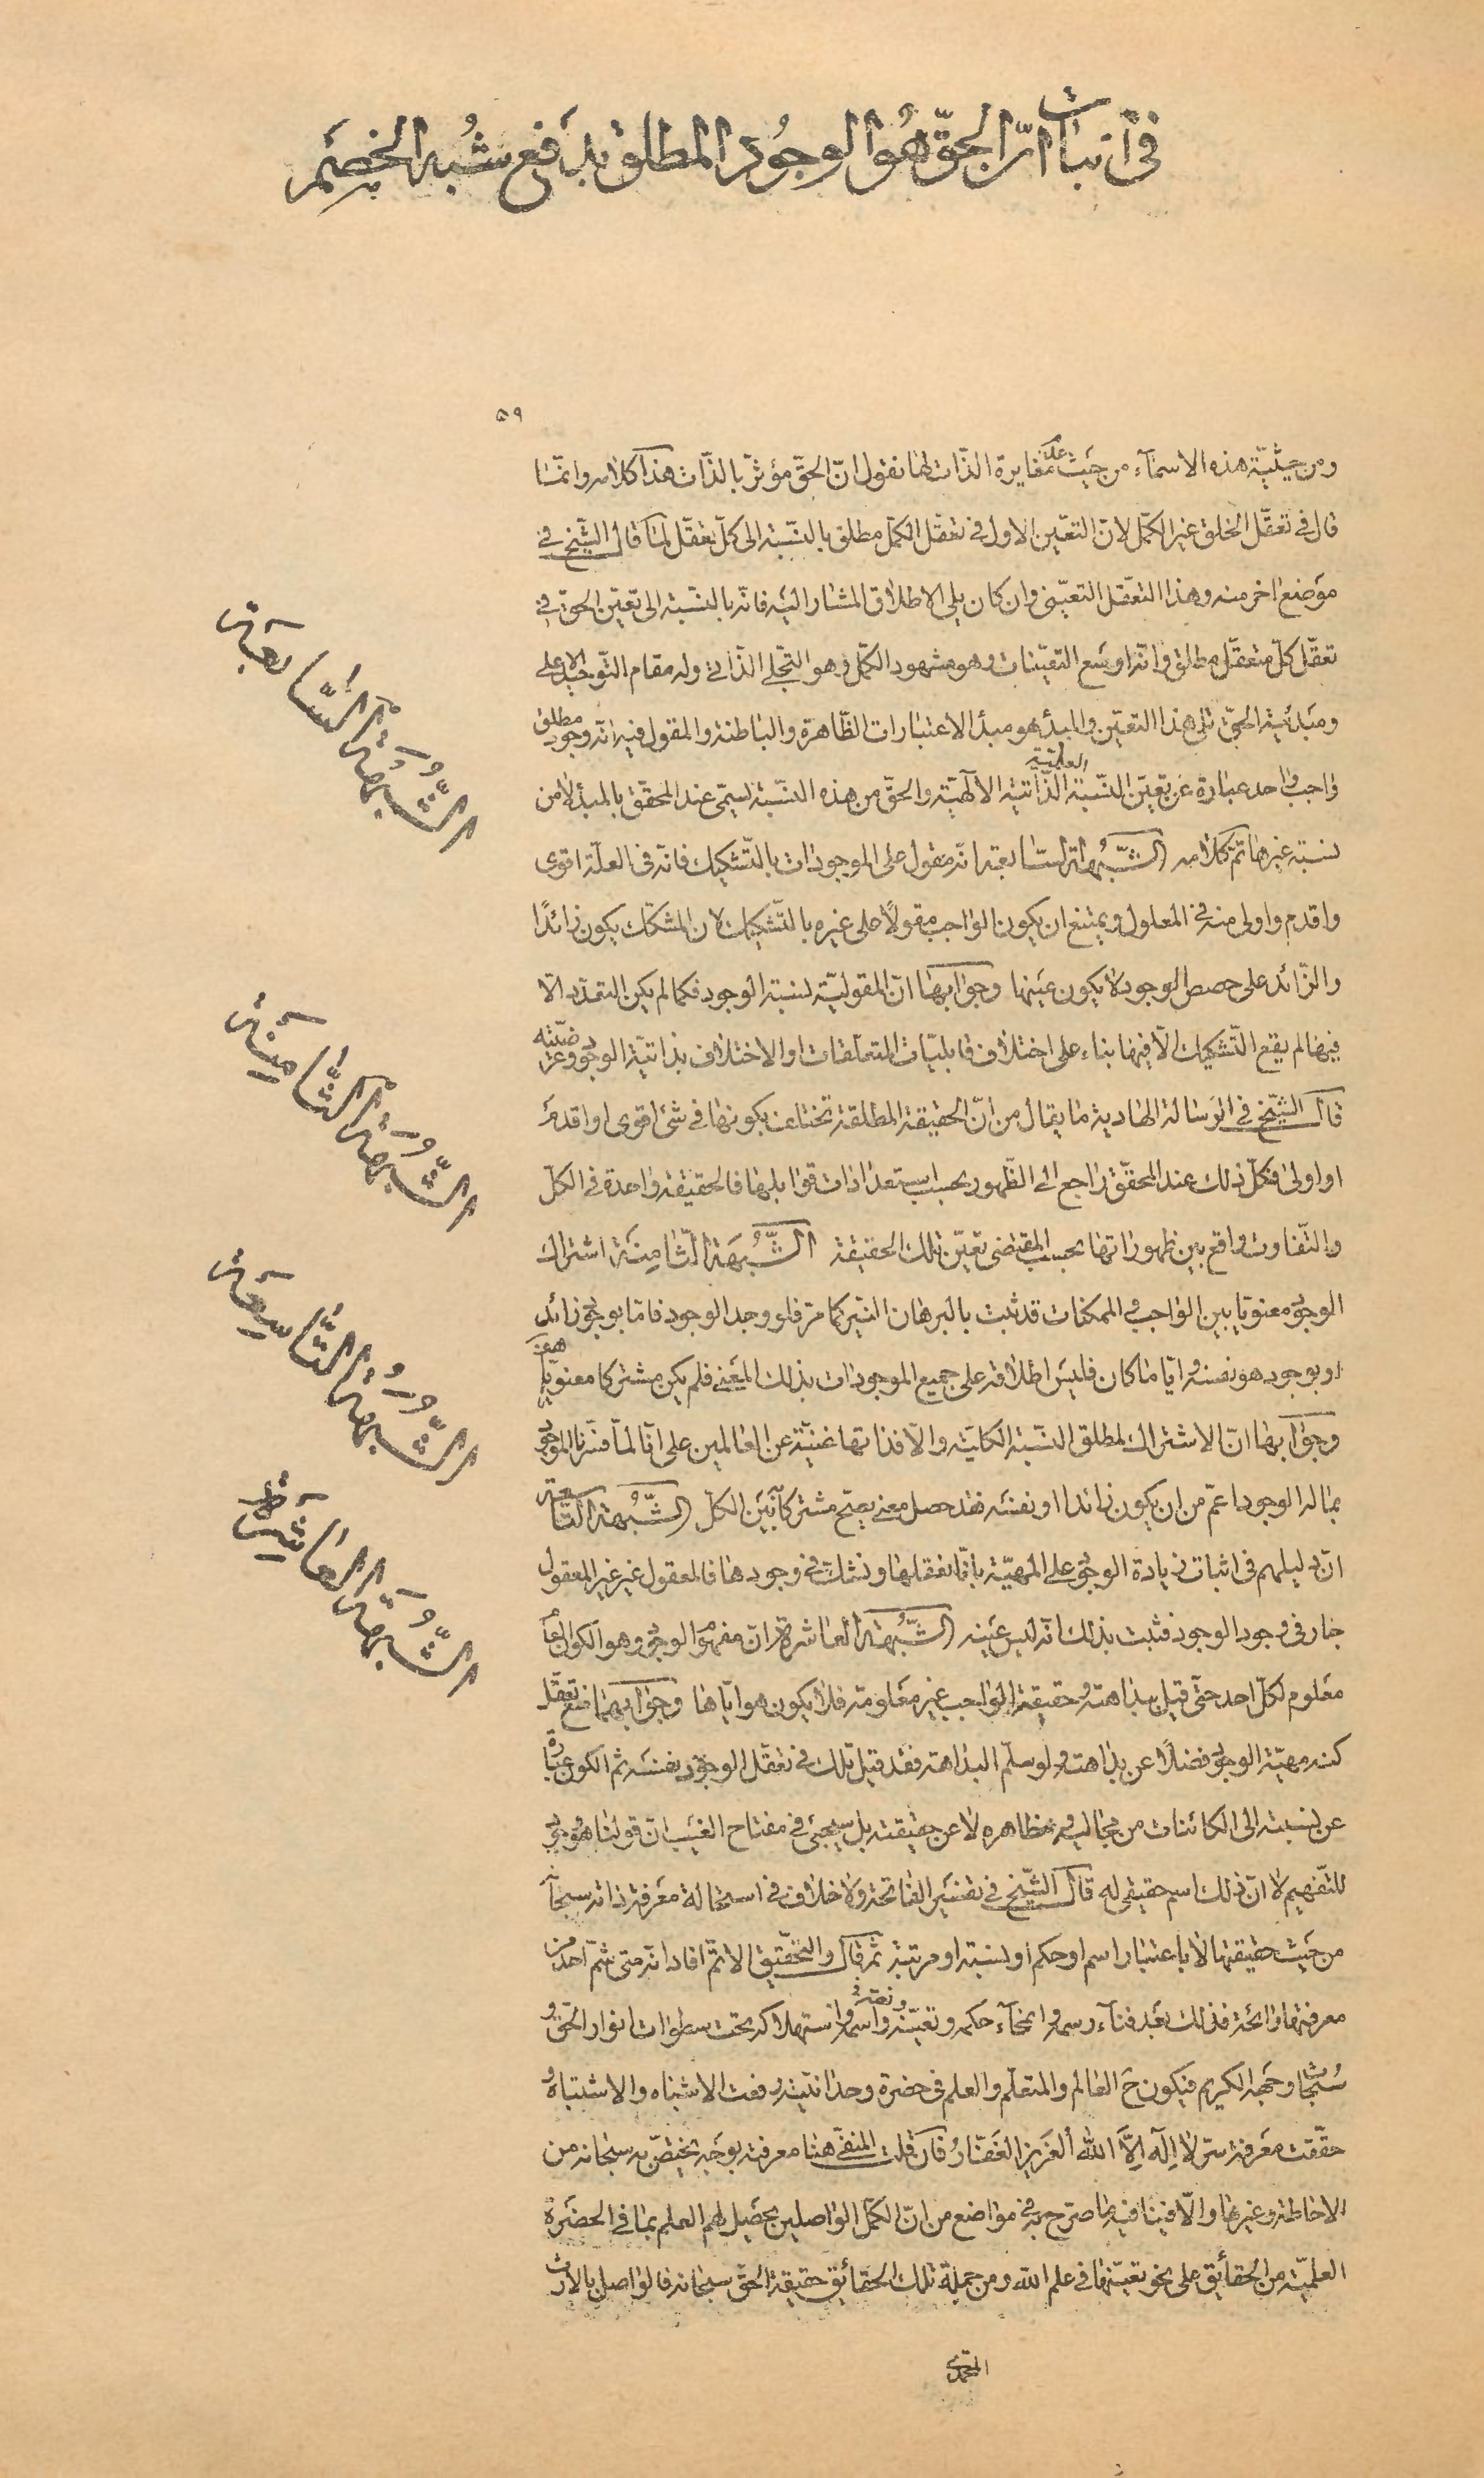 في اثبات ان الحق هو الوجود المطلق بدفع شبه الخصم
۵۹
ومن حيثية هذه الاسمآء من حيث عدم مغايرة الذات لها نقول ان الحق مؤثر بالذات هذا كلامه وانما
قال في تعقل الخلق غير الكمل لان التعين الاول في تعقل الكمل مطلق بالنسبة الى كل تعقل لما قال الشيخ في
موضع اخر منه وهذا التعقل التعيني وان كان يلي الاطلاق المشار اليه فانه بالنسبة الى تعين الحق في
تعقل كل متعقل مطلق وانه اوسع التعينات وهو مشهود الكمل وهو التجلي الذاتي وله مقام التوحيد الاعلى
ومبدئية الحق تلي هذا التعين والمبدأ هو مبدأ الاعتبارات الظاهرة والباطنة والمقول فيه انه وجود مطلق
واجب واحد عبارة عن تعين النسبة العلمية الذاتية الآلهية والحق من هذه النسبة يسمى عند المحقق بالمبدأ لا من
نسبة غيرها تم كلامه الشبهة السابعة انه مقول على الموجودات بالتشكيك فانه في العلة اقوى
واقدم واولى منه في المعلول ويمتنع ان يكون الواجب مقولاً على غيره بالتشكيك لان المشكك يكون زائدًا
والزائد على حصص الوجود لا يكون عينها وجوابها ان المقولية لنسبة الوجود فكما لم يكن التعدد الا
فيها لم يقع التشكيك الا فيها بناء على اختلاف قابليات المتعلقات او الاختلاف بذاتية الوجود وعرضيته
قال الشيخ في الرسالة الهادية ما يقال من ان الحقيقة المطلقة تختلف بكونها في شئ اقوى او اقدم
او اولى فكل ذلك عند المحقق راجع الى الظهور بحسب استعدادات قوابلها فالحقيقة واحدة في الكل
والتفاوت واقع بين ظهوراتها بحسب المقتضى تعين تلك الحقيقة الشبهة الثامنة اشتراك
الوجود معنويا بين الواجب والممكنات قد ثبت بالبرهان النير كما مر فلو وجد الوجود فاما بوجود زائد
او بوجود هو نفسه وايا ما كان فليس اطلاقه على جميع الموجودات بذلك المعنى فلم يكن مشتركا معنويا هف
وجوابها ان الاشتراك لمطلق النسبة الكلية والا فذاتها غنية عن العالمين على انا لما فسرنا الموجود
بما له الوجود اعم من ان يكون زائدا او نفسه فقد حصل معنى يصح مشتركا بين الكل الشبهة التاسعة
ان دليلهم في اثبات زيادة الوجود على المهية بانا نعقلها ونشك في وجودها فالمعقول غير غير المعقول
جار في وجود الوجود فثبت بذلك انه ليس عينه الشبهة العاشرة ان مفهوم الوجود وهو الكون العام
معلوم لكل احد حتى قيل ببداهته وحقيقة الواجب غير معلومة فلا يكون هو اياها وجوابهما منع تعقل
كنه مهية الوجود فضلا عن بداهته ولو سلم البداهة فقد قيل تلك في تعقل الوجود بنفسه ثم الكون عبارة
عن نسبته الى الكائنات من مجاليه ومظاهره لا عن حقيقته بل سيجئ في مفتاح الغيب ان قولنا هو وجود
للتفهيم لا ان ذلك اسم حقيقي له قال الشيخ في تفسير الفاتحة ولا خلاف في استحالة معرفة ذاته سبحانه
من حيث حقيقتها لا باعتبار اسم او حكم او نسبة او مرتبة ثم قال والتحقيق الاتم افاد انه متى شم احد من
معرفتها رائحة فذلك بعد فناء رسمه وانمحآء حكمه وتعينه ونعته واسمه واستهلاكه تحت سطوات انوار الحق و
سبحات وجهه الكريم فيكون ح العالم والمتعلم والعلم في حضرة وحدانية رفعت الاشباه والاشتباه و
حققت معرفة سر لا اله الا الله العزيز الغفار فان قلت المنفي هنا معرفته بوجه يختص به سبحانه من
الاحاطة وغيرها والا فينافيه ما صرح به في مواضع من ان الكمل الواصلين يحصل لهم العلم بما في الحضرة
العلمية من الحقائق على نحو تعينها في علم الله ومن جملة تلك الحقائق حقيقة الحق سبحانه فالواصل بالارث
المحمدي
الشبهة السابعة
الشبهة الثامنة
الشبهة التاسعة
الشبهة العاشرة